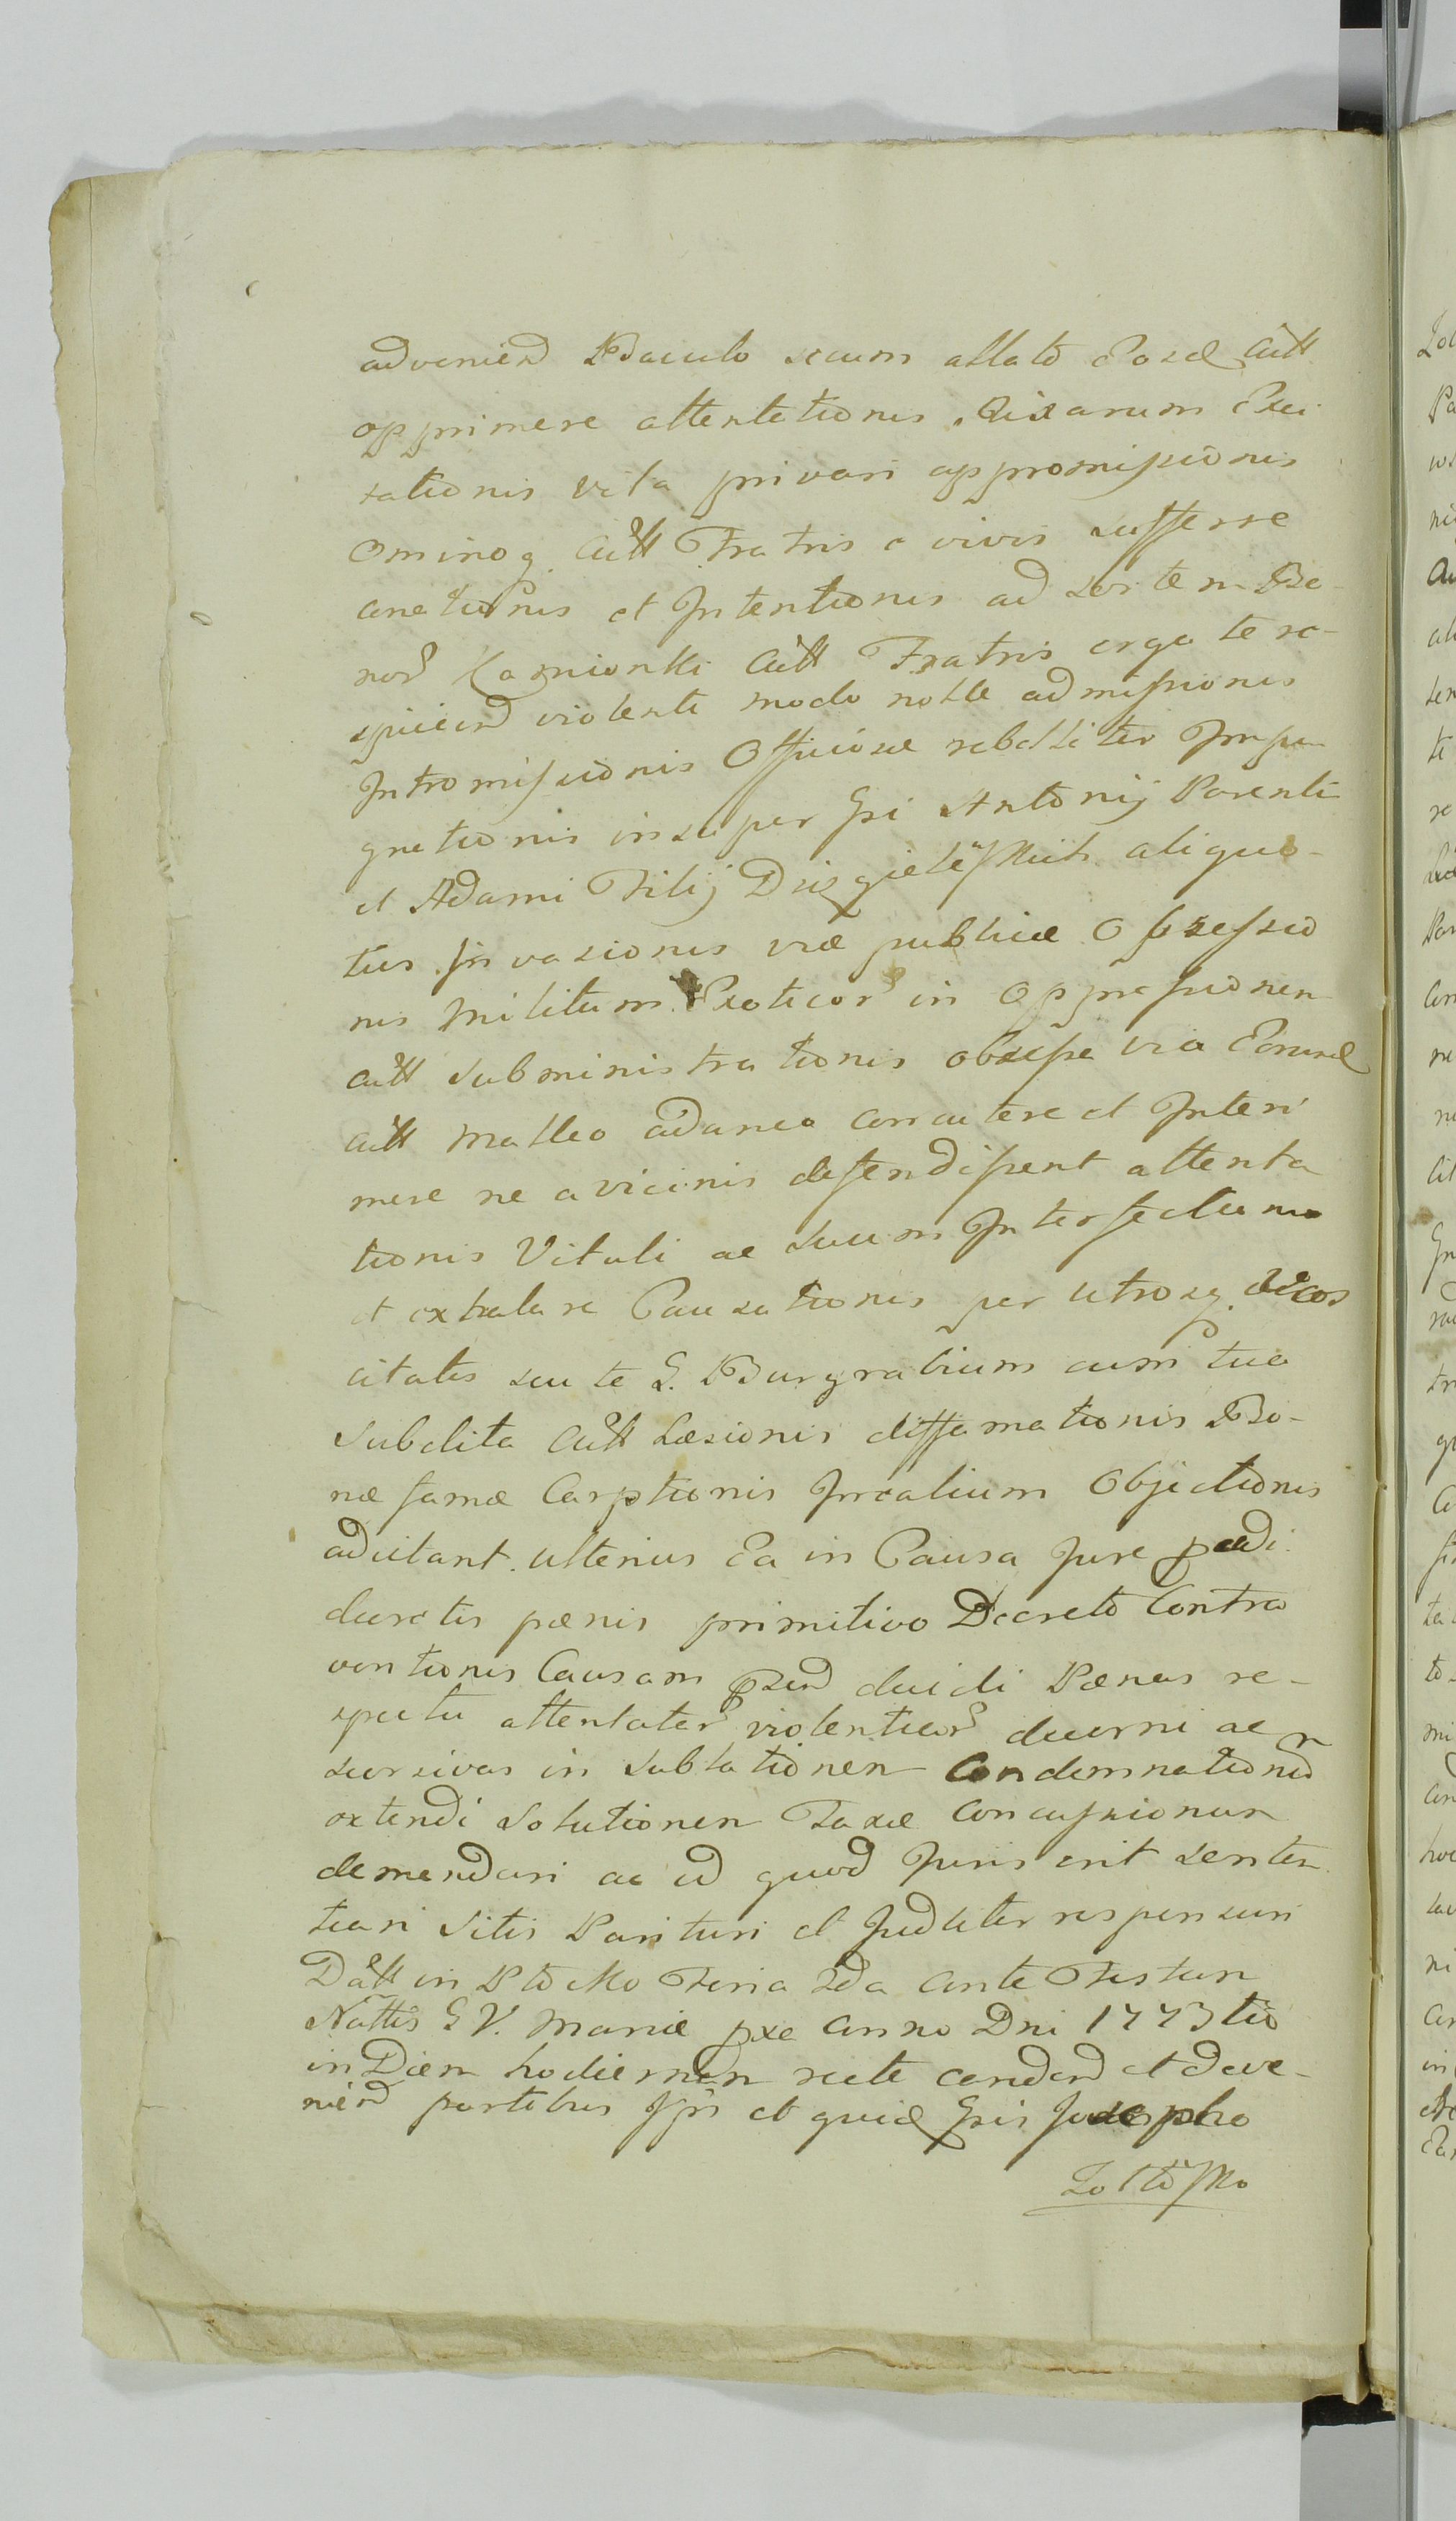 advenien̄d Baculo secum allato Eosd Actt
opprimere attentationis, Rixarum Exci
tationis vita privari appromissionis
ominoq Actt Fratris e vivis sufferre
conationis et Intentionis ad sortem Bo-
nor Kamionki Actt Fratris erga te re-
spiciend violenti modo nolle admissionis
Intromissionis Officiose rebelliter Impu
gnationis insuper Gsi Antonij Parenti
et Adami Filij aliquo-
ties Invasionis viæ publicæ Obsessio
nis Militum Exoticor in oppressionem
Actt Subministrationis obsessa via Eorund
Actt Malleo adunco concutere et Interi
mere ne a vicinis defendissent attenta
tionis Vituli ac suum Interfectum
et extralare Causationis per utrosq Vicos
citatis seu te G. Burgrabium cum tua
Subdita Actt Læsionis diffamationis Bo-
næ famæ Carptionis Invalium Objectionis
adcitant. ulterius Ea in Causa Jure prædi
ductis pænis primitivo Decreto Contra
ventionis Causam duidi Pænas re-
spectu attentator violenticor decerni ac
sursivas in Sublationem Condemnationū
extendi Solutionem Taxæ Concussionum
demandari ac id quod Juris erit senten
tiari Sitis Parituri et Judliter responsuri
Datt in Plocko Feria 2da ante Festum
Nattis G V. Mariæ pxa Anno Dni 1773tio
in Diem hodiernam recte cadend et deve-
niend partibus Ipis et quid Gsis Josepho